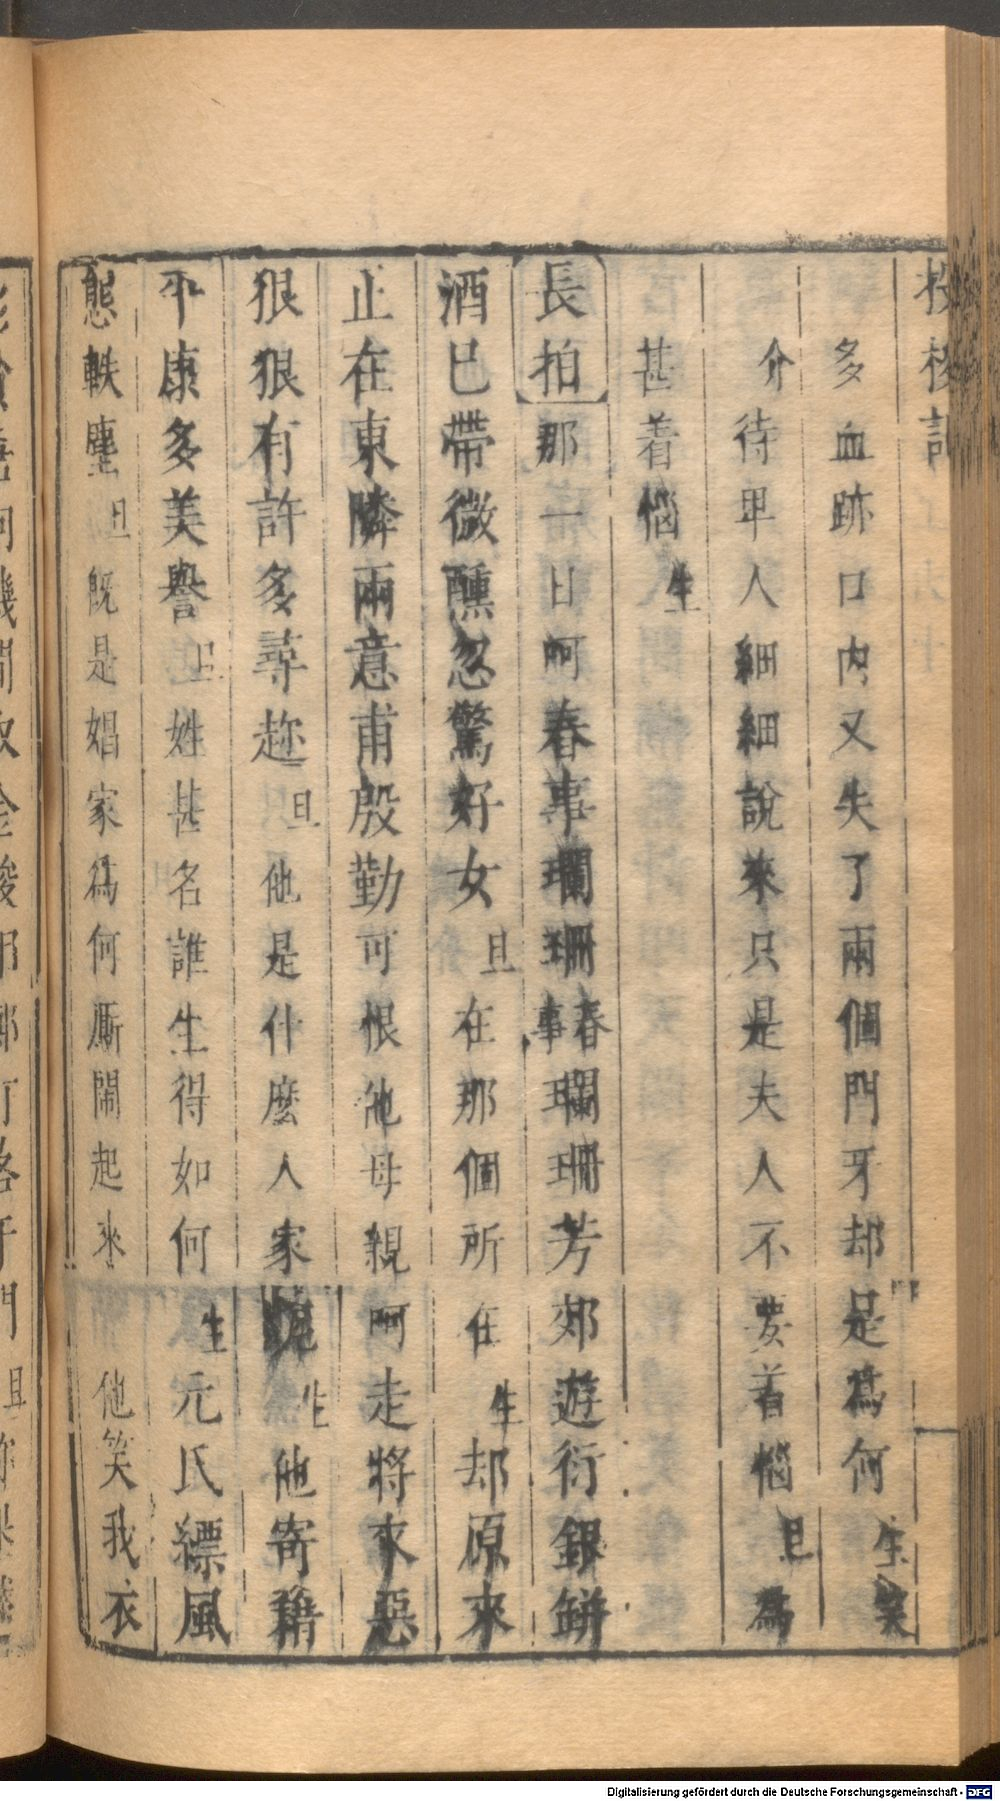 多血跡口内又失了兩個門牙却是爲何生笑
介待卑人細細說來只是夫人不要着惱旦爲
甚着惱生
長拍那一日呵春事瓓珊春事瓓珊芳郊遊衍銀缾
酒已帶微醺忽驚好女旦在那個所在生却原來
止在東隣兩意甫殷勤可恨他母親呵走將來惡
狠狠有許多尋趂旦他是什麽人家生他寄籍
平康多美譽旦姓甚名誰生得如何生元氏縹風
態軼塵旦既是娼家爲何厮閙起來他笑我衣
Digitalisierung gefördert durch die Deutsche Forschungsgemeinschaft - DFG